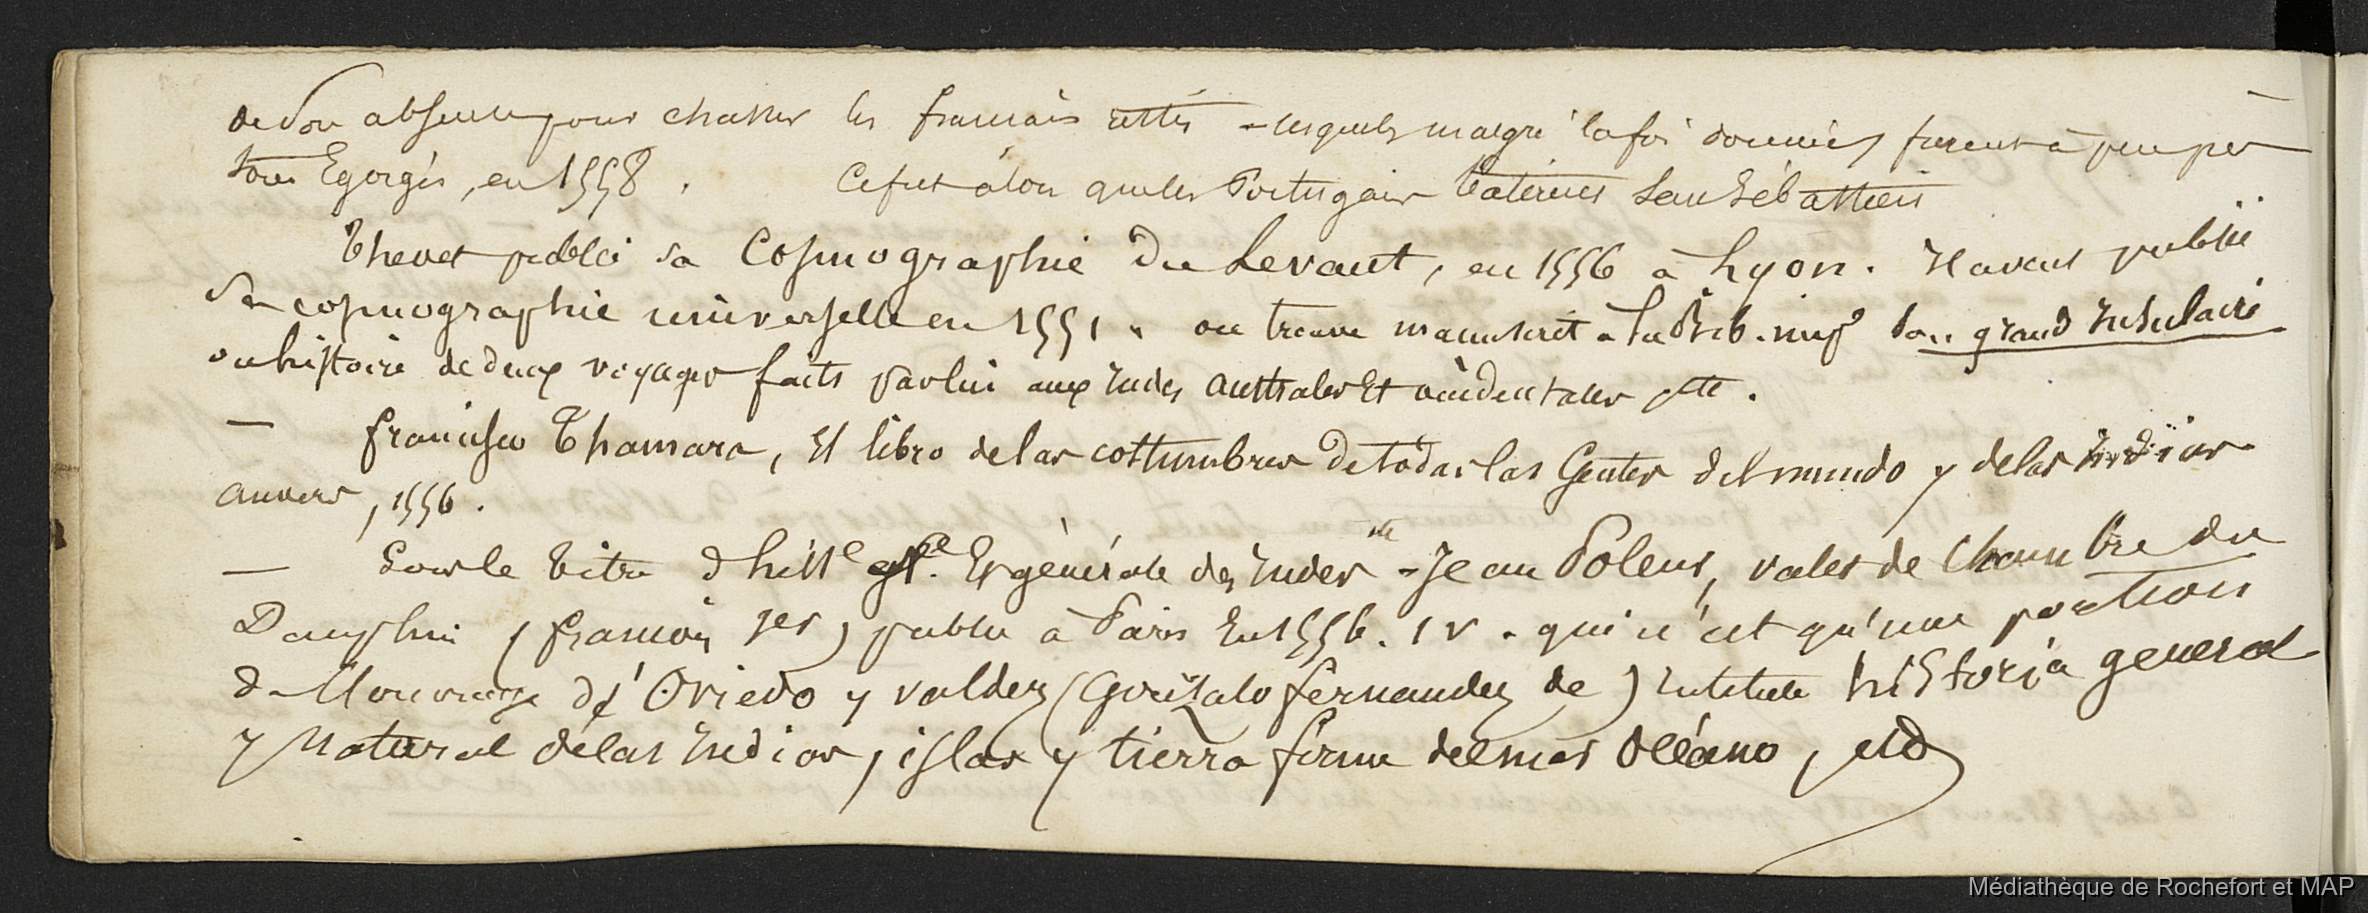 de son absence pour chasser les francais restés - lesquels malgré la foi donnée, furent à peu près
tous Egorgés, en 1558. Ce fut alors que les Portugais batirent San Sébastien
Thevet publia sa Cosmographie du Levant, en 1556 à Lyon. Il avait publié
sa cosmographie universelle en 1551. on trouve manuscrit à la Bib. son grand Insulaire
ou histoire de deux voyages faits par lui aux Indes australes Et occidentales etc.
— francisco Thamara, El libro de las costumbres de todas las Gentes del mundo y de las Indias
anvers, 1556.
— Sous le titre d'histe Et générale des Indes - Jean Poleur, valet de chambre du
Dauphin (francois 1er) publia à Paris En 1556. 1 v. qui n'est qu'une portion
de l'ouvrage d'Oviedo y valdez (Gonzalo fernandez de) intitulé historia general
y Natural de las Indias, islas y tierra firme del mar Océano, etc
Médiathèque de Rochefort et MAP